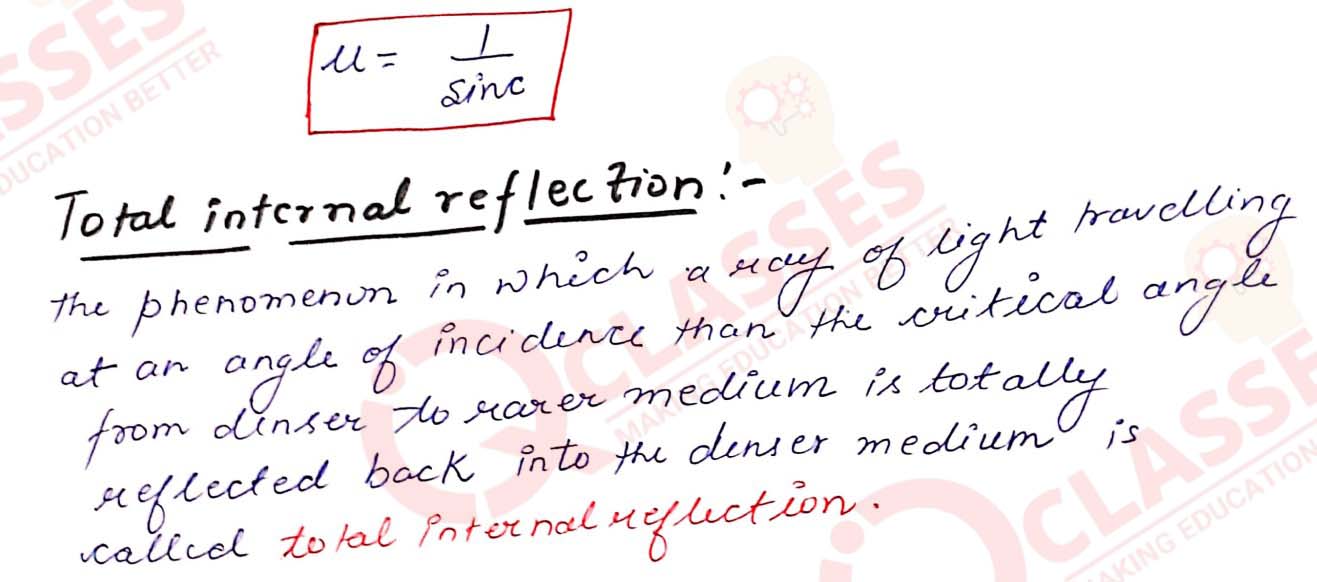 u = 1/sinc
Total internal reflection:-
the phenomenon in which a ray of light travelling
at an angle of incidence than the critical angle
from denser to rarer medium is totally
reflected back into the denser medium is
called total internal reflection.
CLASSES
MAKING EDUCATION BETTER
SSES
DUCATION BETTER
CLASSE
AKING EDUCATION